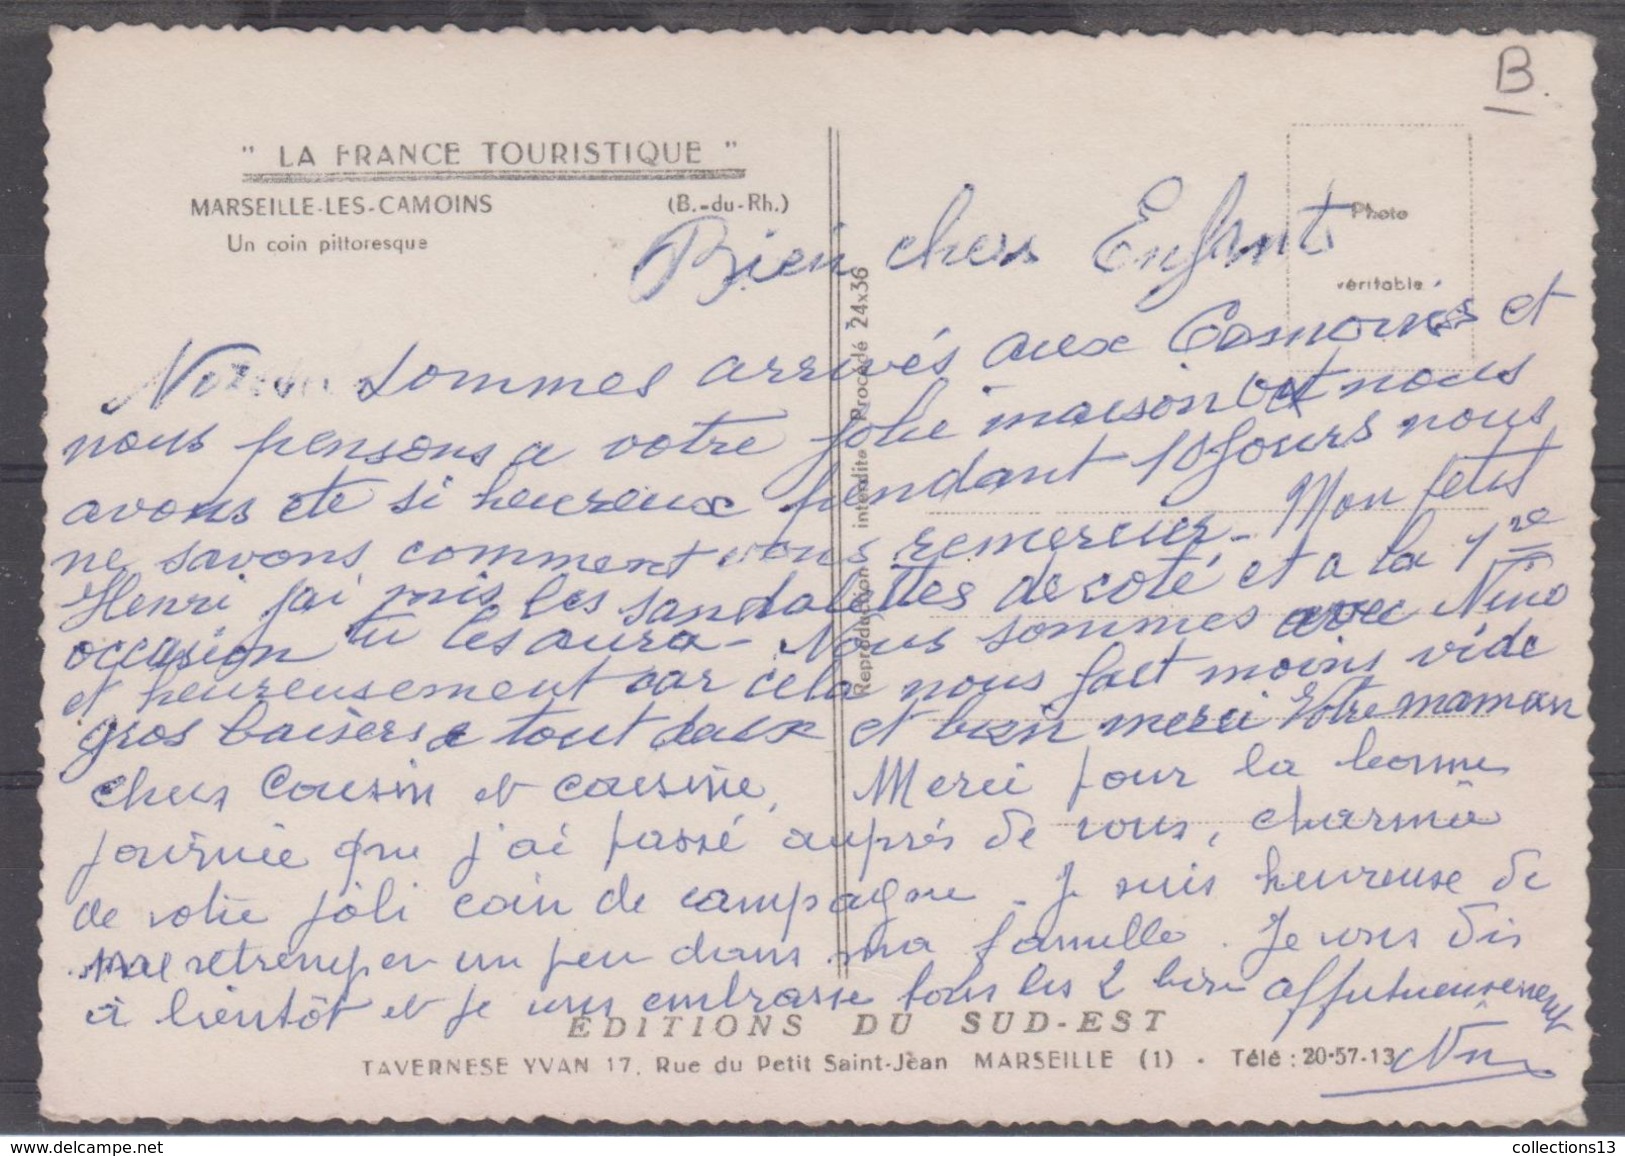 B.
" LA FRANCE TOURISTIQUE "
MARSEILLE-LES-CAMOINS (B.-du-Rh.)
Un coin pittoresque
Photo
véritable
Reproduction interdite Procédé 24x36
Bien chers Enfant
Nous sommes arrivés aux Camoins et
nous pensons a votre jolie maison et nous
avons ete si heureux pendant 10 jours nous
ne savons comment vous remercier - Mon petit
Henri j'ai mis les sandalettes de coté et a la 1re
occasion tu les aura - Nous sommes avec Nino
et heureusement car cela nous fait moins vide
gros baisers a tout deux et bien merci Votre maman
chers Cousin et cousine, Merci pour la bonne
journée que j'ai passé auprès de vous, charmée
de votre joli coin de campagne - Je suis heureuse de
me retremper un peu dans ma famille. Je vous dis
à bientôt et je vous embrasse tous les 2 bien affectueusement
EDITIONS DU SUD-EST
TAVERNESE YVAN 17, Rue du Petit Saint-Jean MARSEILLE (1) - Télé : 20-57-13
collections13